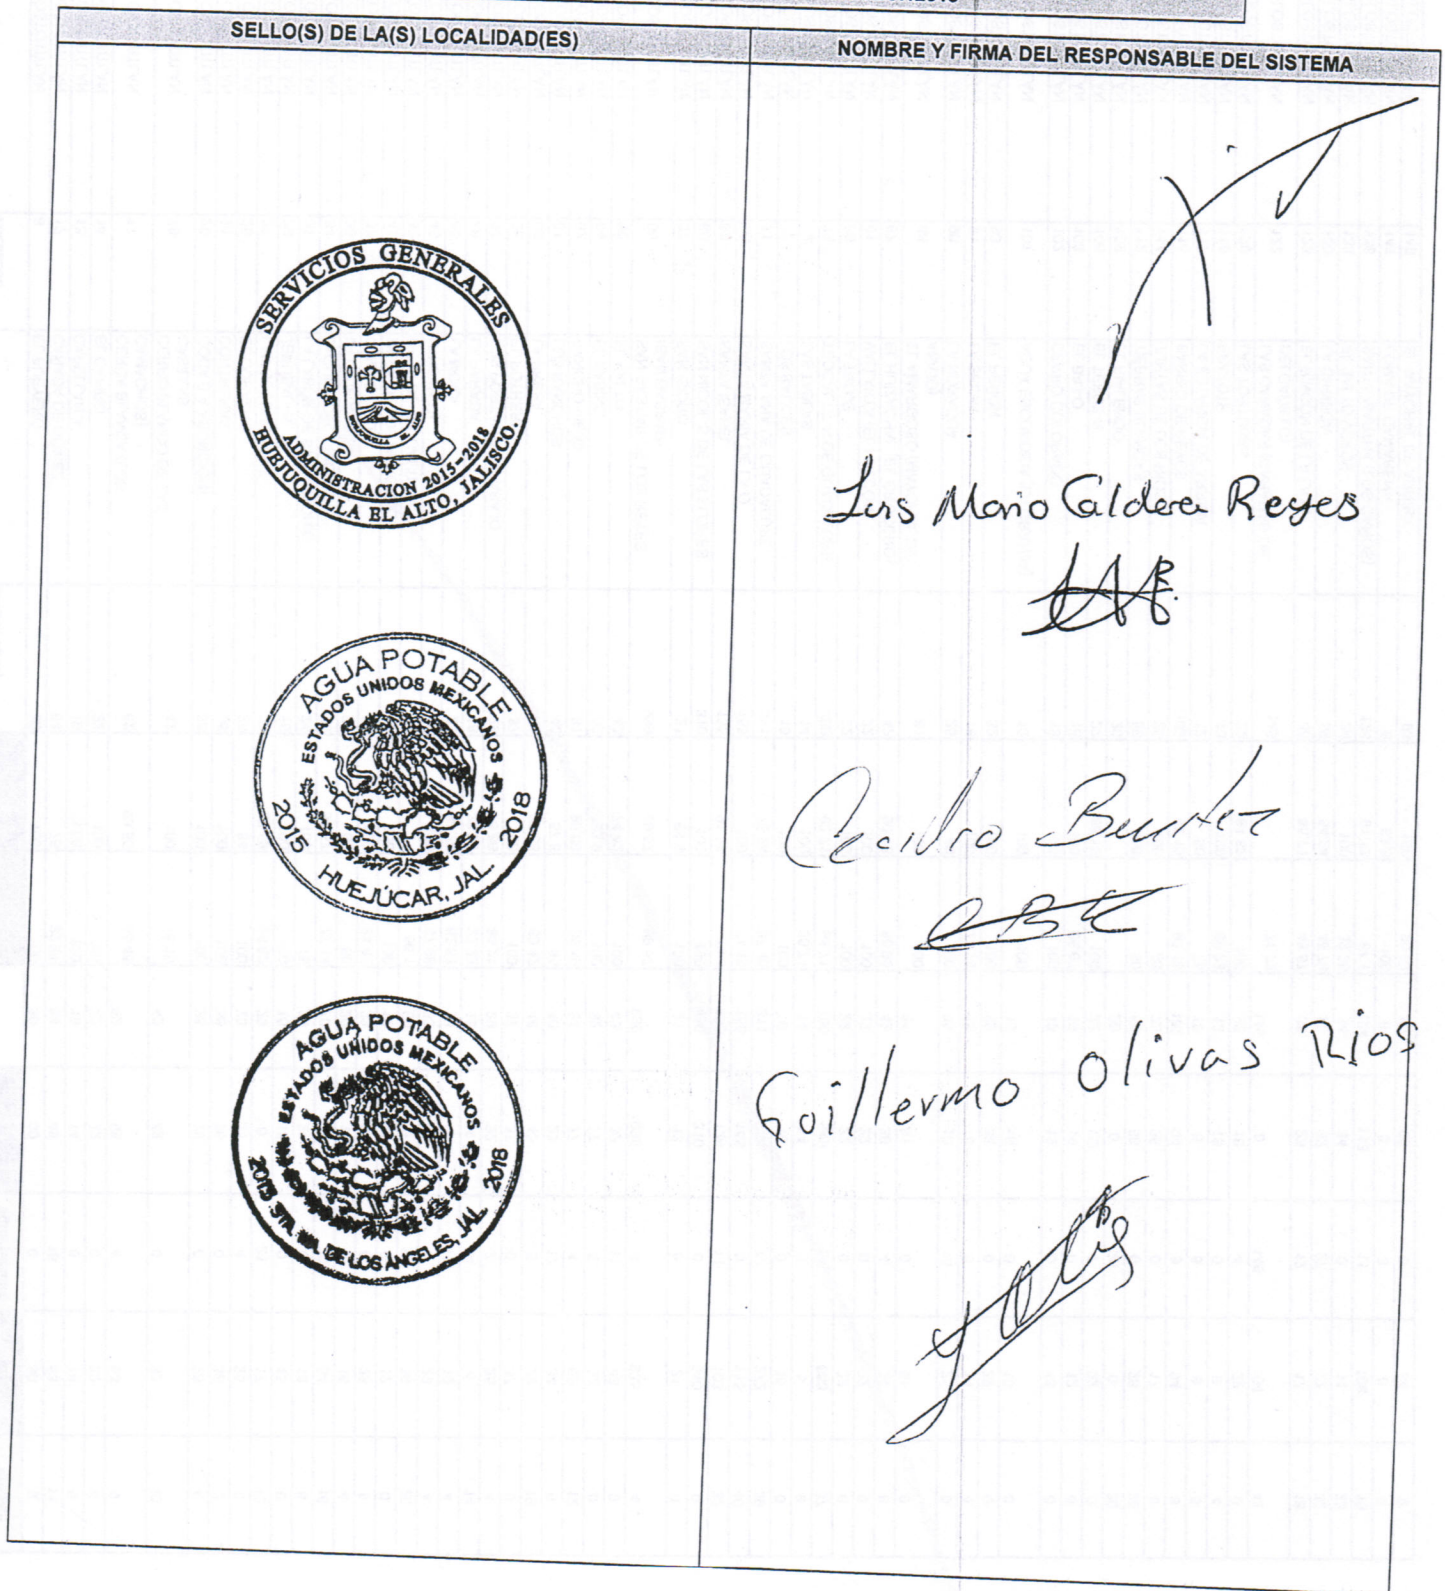 SELLO(S) DE LA(S) LOCALIDAD(ES)
NOMBRE Y FIRMA DEL RESPONSABLE DEL SISTEMA
SERVICIOS GENERALES
HUEJUQUILLA EL ALTO
ADMINISTRACION 2015-2018
HUEJUQUILLA EL ALTO, JALISCO.
Luis Mario Caldera Reyes
AGUA POTABLE
ESTADOS UNIDOS MEXICANOS
2015 2018
HUEJÚCAR, JAL.
Benitez
AGUA POTABLE
ESTADOS UNIDOS MEXICANOS
2015 STA. MA. DE LOS ÁNGELES, JAL. 2018
Guillermo Olivas Rios